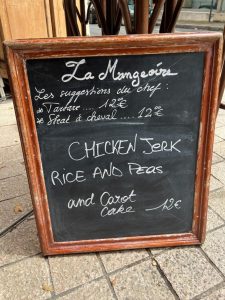 La Mangeoire
Les suggestions du chef:
* Tartare .... 12€
* Steak à cheval .... 12€
CHICKEN JERK
RICE AND PEAS
and Carot
Cake 12€